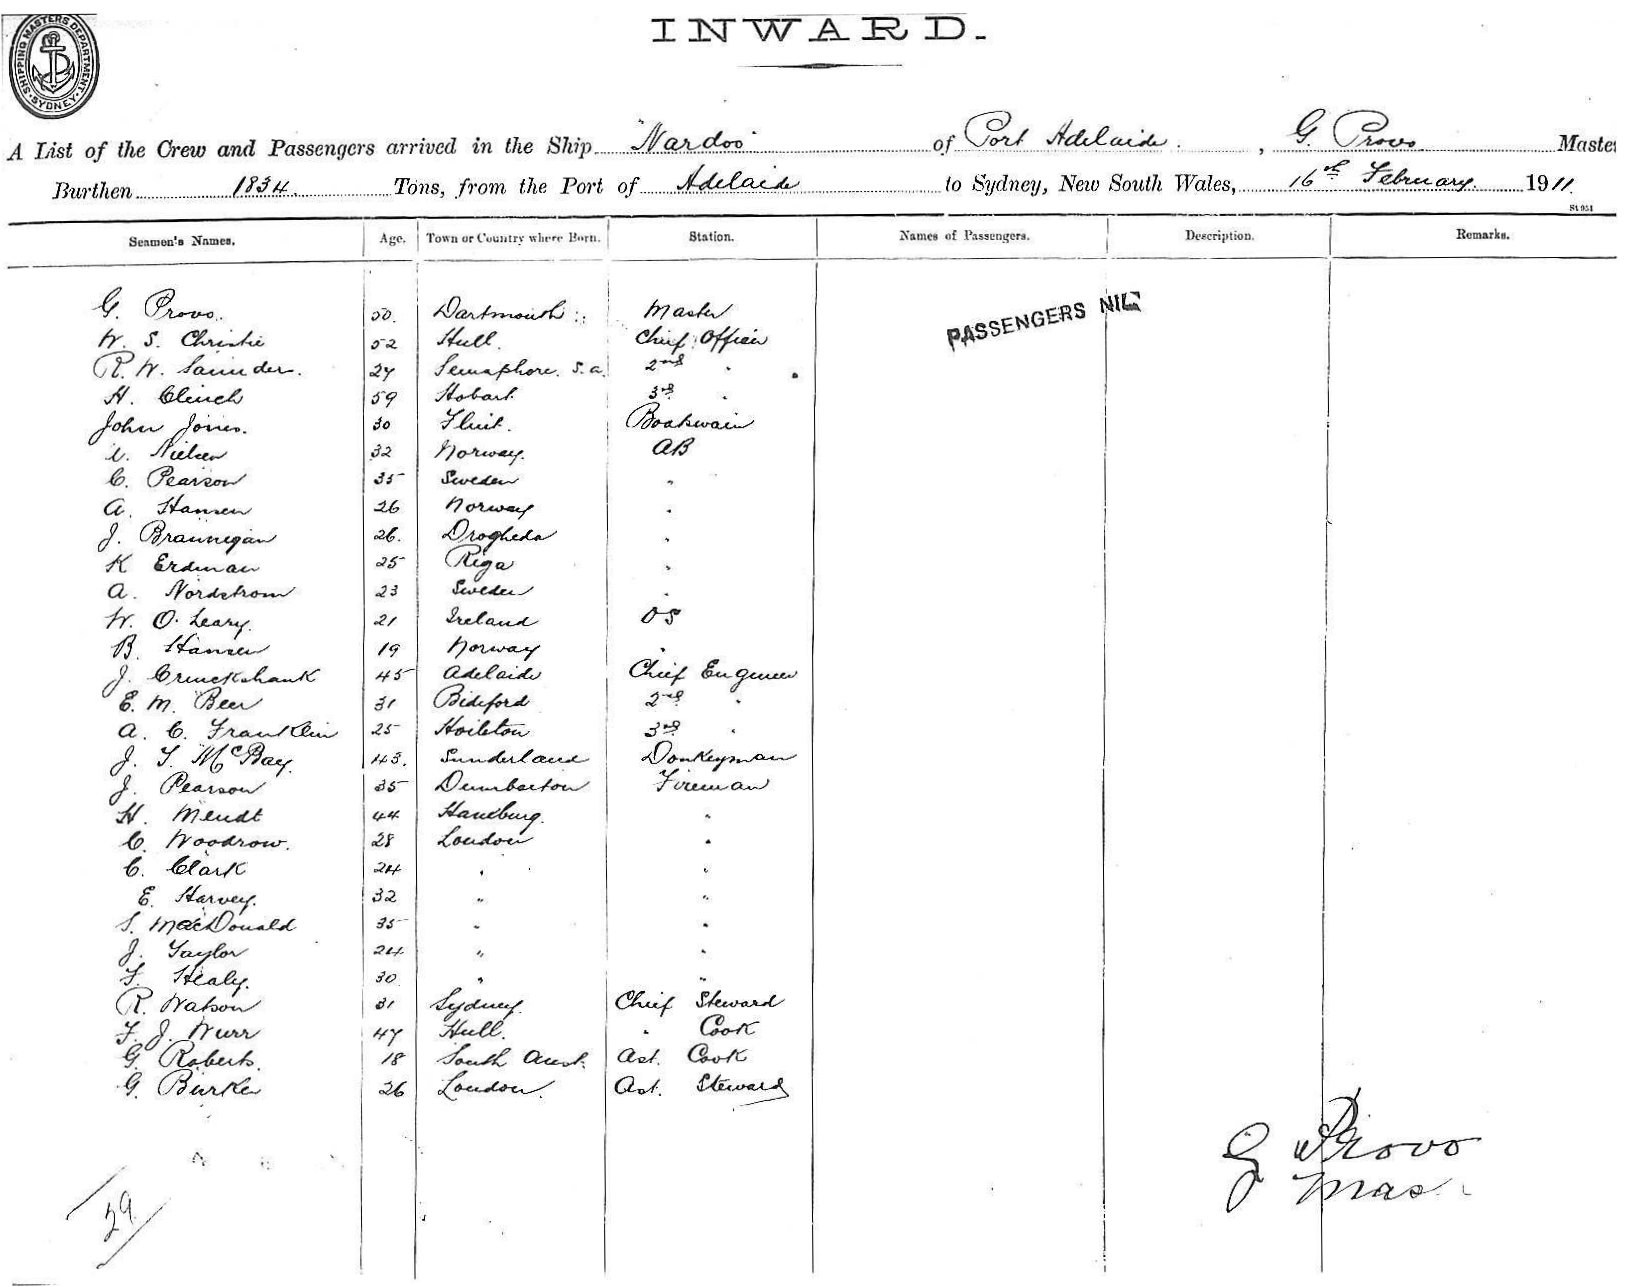 SHIPPING MASTERS DEPARTMENT · SYDNEY ·
INWARD.
A List of the Crew and Passengers arrived in the Ship "Nardoo" of Port Adelaide, G. Provo Maste
Burthen 1834 Tons, from the Port of Adelaide to Sydney, New South Wales, 16th February 1911
St 951
Seamen's Names. Age. Town or Country where Born. Station. Names of Passengers. Description. Remarks.
G. Provo. 50. Dartmouth Master
PASSENGERS NIL
W. S. Christie 52 Hull. Chief Officer
R. W. Saunders. 24 Semaphore. S.a. 2nd "
H. Clinch 59 Hobart 3rd "
John Jones. 30 Flint. Boatswain
Nielsen 32 Norway. AB
C. Pearson 35 Sweden "
A. Hansen 26 Norway "
J. Brannigan 26. Drogheda "
K Erdman 25 Riga "
A. Nordstrom 23 Sweden "
W. O'Leary. 21 Ireland OS
B. Hansen 19 Norway "
J. Cruickshank 45 Adelaide Chief Engineer
E. M. Beer 31 Bideford 2nd "
A. C. Franklin 25 Hoileton 3rd "
J. T. McBay. 43. Sunderland Donkeyman
J. Pearson 35 Dumbarton Fireman
H. Mendt 44 Hamburg. "
C. Woodrow. 28 London "
C. Clark 24 " "
E. Harvey. 32 " "
S. MacDonald 35 " "
J. Taylor 24 " "
F. Healy. 30 " "
R. Watson 31 Sydney. Chief Steward
F. J. Wurr 47 Hull. " Cook
G. Roberts. 18 South Aust. Ast. Cook
G. Burke 26 London. Ast. Steward
G Provo
Mas.
29